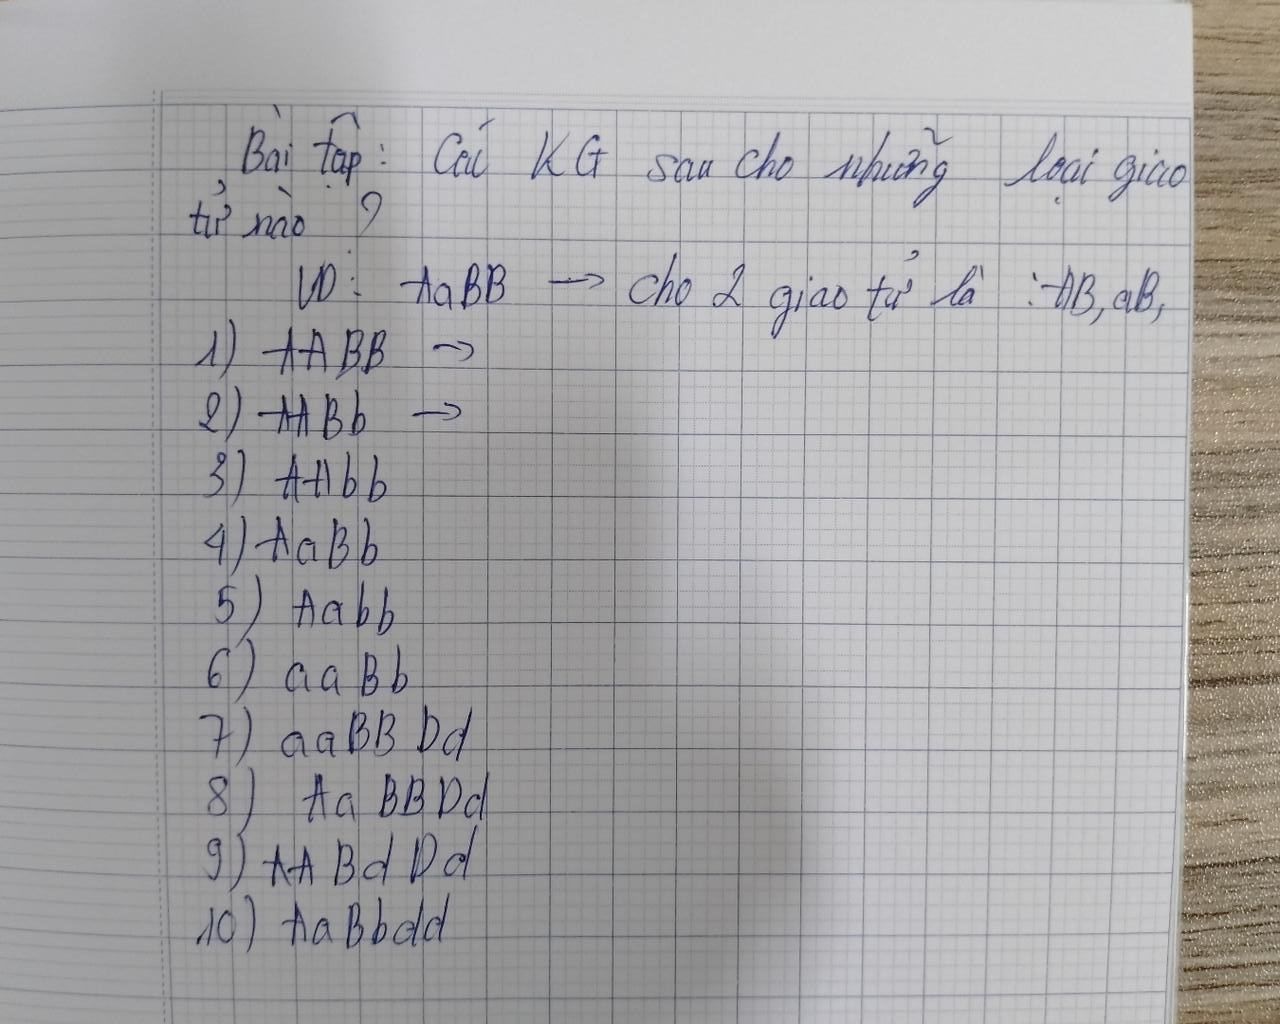 Bài tập: Các KG sau cho những loại giao
tử nào ?
VD: AaBB → cho 2 giao tử là : AB, aB,
1) AABB →
2) AABb →
3) AAbb
4) AaBb
5) Aabb
6) aaBb
7) aaBBDd
8) AaBBDd
9) AABdDd
10) AaBbdd